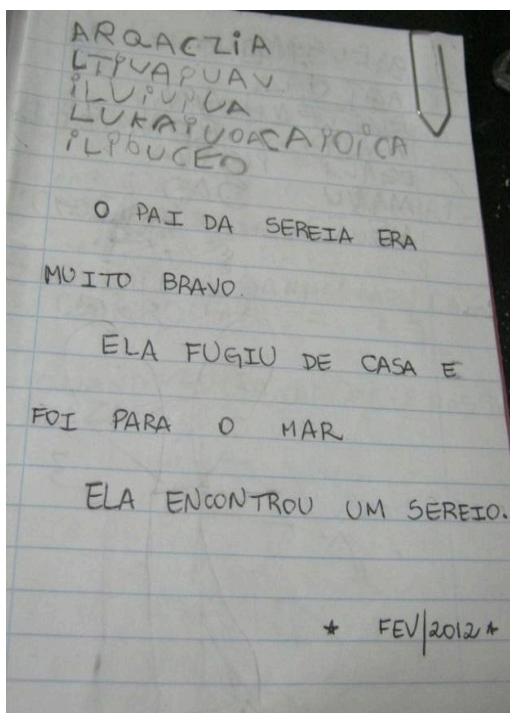 ARQACZIA
LTPVAPUAV
ILVIUPUA
LUKAPUOACAPOICA
ILPOUCEO
O PAI DA SEREIA ERA
MUITO BRAVO.
ELA FUGIU DE CASA E
FOI PARA O MAR
ELA ENCONTROU UM SEREIO.
* FEV/2012 *